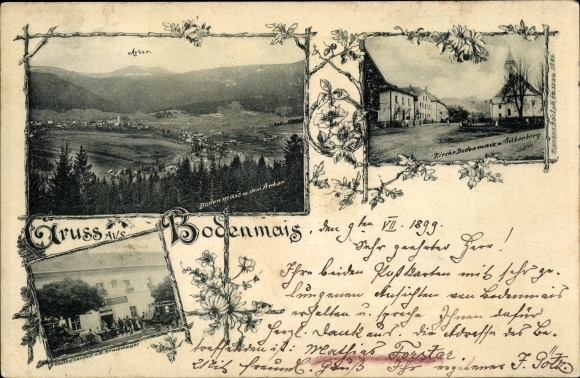 Arber.
Bodenmais m. dem Arber
Kirche Bodenmais u. Silberberg
Gruss aus Bodenmais,
den 9ten VII. 1899.
Sehr geehrter Herr!
Ihre beiden Postkarten mit sehr ge-
lungenen Ansichten von Bodenmais
erhalten u. spreche Ihnen dafür
Herzl. Dank aus. die Adresse des Be-
treffenden ist: Mathias Forstar
Mit freundl. Gruß Ihr ergebener J.